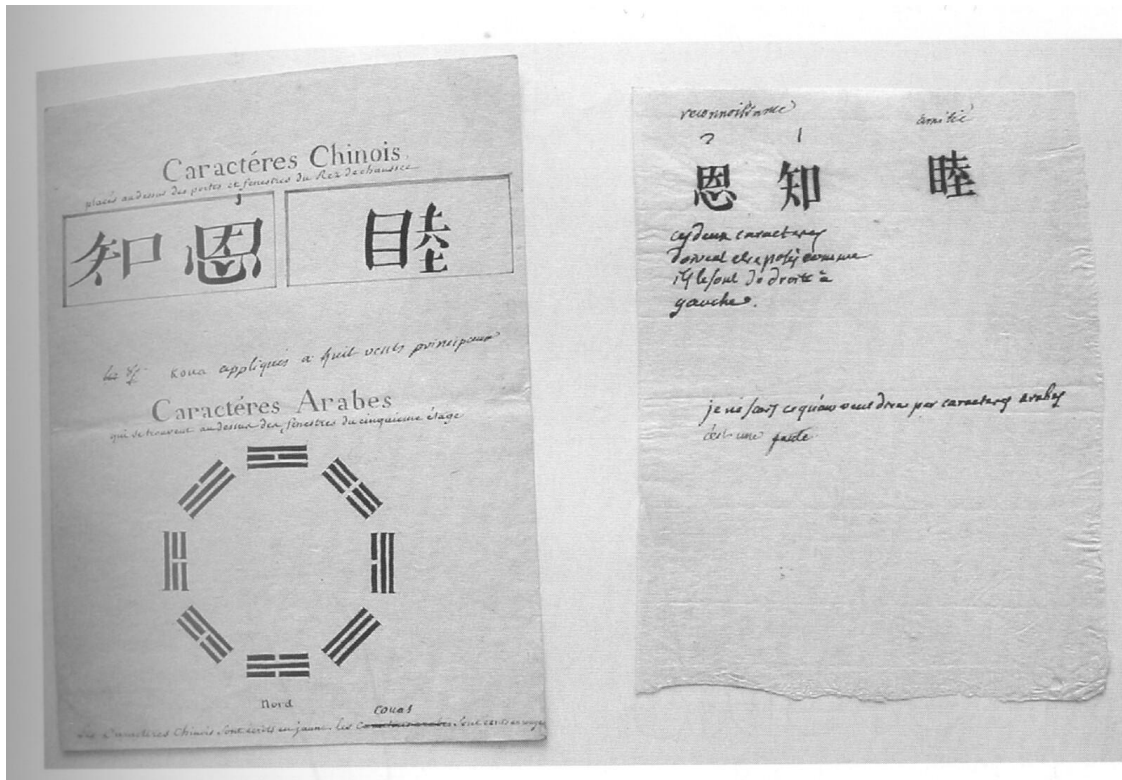 Caractéres Chinois,
placés au dessus des portes et fenestres du Rez de chaussée
知恩 睦
Koua appliqués a huit vents principaux
Caractéres Arabes
qui se trouvent au dessus des fenestres du cinquieme étage
Nord
couas
Les Caractéres Chinois sont écrits en jaune. les Caracteres arabes sont écrits en rouge
reconnoissance amitié
2 1
恩 知 睦
ces deux caracteres
doivent etre posés comme
ils le sont de droite à
gauche.
je ne sçais ce qu'on veut dire par caracteres arabes
c'est une faute.